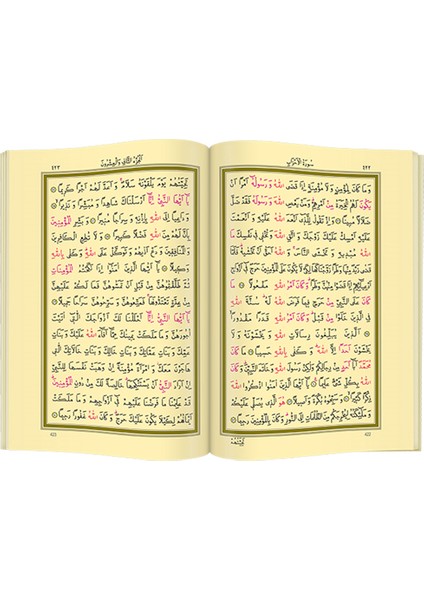 سُورَةُ الْاَحْزَابِ ٤٢٢
وَمَا كَانَ لِمُؤْمِنٍ وَلَا مُؤْمِنَةٍ اِذَا قَضَى اللّٰهُ وَرَسُولُهُٓ اَمْرًا اَنْ
يَكُونَ لَهُمُ الْخِيَرَةُ مِنْ اَمْرِهِمْ وَمَنْ يَعْصِ اللّٰهَ وَرَسُولَهُ فَقَدْ ضَلَّ
ضَلَالًا مُبِينًا وَاِذْ تَقُولُ لِلَّذِٓي اَنْعَمَ اللّٰهُ عَلَيْهِ وَاَنْعَمْتَ
عَلَيْهِ اَمْسِكْ عَلَيْكَ زَوْجَكَ وَاتَّقِ اللّٰهَ وَتُخْفِي فِي نَفْسِكَ مَا
اللّٰهُ مُبْدِيهِ وَتَخْشَى النَّاسَ وَاللّٰهُ اَحَقُّ اَنْ تَخْشٰيهُ فَلَمَّا
قَضٰى زَيْدٌ مِنْهَا وَطَرًا زَوَّجْنَاكَهَا لِكَيْ لَا يَكُونَ عَلَى الْمُؤْمِنِينَ حَرَجٌ فِٓي اَزْوَاجِ
اَدْعِيَٓائِهِمْ اِذَا قَضَوْا مِنْهُنَّ وَطَرًا وَكَانَ اَمْرُ اللّٰهِ مَفْعُولًا مَا
كَانَ عَلَى النَّبِيِّ مِنْ حَرَجٍ فِيمَا فَرَضَ اللّٰهُ لَهُ سُنَّةَ اللّٰهِ
فِي الَّذِينَ خَلَوْا مِنْ قَبْلُ وَكَانَ اَمْرُ اللّٰهِ قَدَرًا مَقْدُورًا
اَلَّذِينَ يُبَلِّغُونَ رِسَالَاتِ اللّٰهِ وَيَخْشَوْنَهُ وَلَا
يَخْشَوْنَ اَحَدًا اِلَّا اللّٰهَ وَكَفٰى بِاللّٰهِ حَسِيبًا مَا كَانَ
مُحَمَّدٌ اَبَٓا اَحَدٍ مِنْ رِجَالِكُمْ وَلٰكِنْ رَسُولَ اللّٰهِ وَخَاتَمَ النَّبِيِّنَ وَكَانَ
اللّٰهُ بِكُلِّ شَيْءٍ عَلِيمًا يَٓا اَيُّهَا الَّذِينَ اٰمَنُوا اذْكُرُوا اللّٰهَ
ذِكْرًا كَثِيرًا وَسَبِّحُوهُ بُكْرَةً وَاَصِيلًا هُوَ الَّذِي يُصَلِّي عَلَيْكُمْ
وَمَلٰٓئِكَتُهُ لِيُخْرِجَكُمْ مِنَ الظُّلُمَاتِ اِلَى النُّورِ وَكَانَ بِالْمُؤْمِنِينَ رَحِيمًا
تَحِيَّتُهُمْ
422
اَلْجُزْءُ الثَّانِي وَالْعِشْرُونَ ٤٢٣
تَحِيَّتُهُمْ يَوْمَ يَلْقَوْنَهُ سَلَامٌ وَاَعَدَّ لَهُمْ اَجْرًا كَرِيمًا
يَٓا اَيُّهَا النَّبِيُّ اِنَّٓا اَرْسَلْنَاكَ شَاهِدًا وَمُبَشِّرًا وَنَذِيرًا
وَدَاعِيًا اِلَى اللّٰهِ بِاِذْنِهِ وَسِرَاجًا مُنِيرًا وَبَشِّرِ الْمُؤْمِنِينَ
بِاَنَّ لَهُمْ مِنَ اللّٰهِ فَضْلًا كَبِيرًا وَلَا تُطِعِ الْكَافِرِينَ
وَالْمُنَافِقِينَ وَدَعْ اَذٰيهُمْ وَتَوَكَّلْ عَلَى اللّٰهِ وَكَفٰى بِاللّٰهِ
وَكِيلًا يَٓا اَيُّهَا الَّذِينَ اٰمَنُٓوا اِذَا نَكَحْتُمُ الْمُؤْمِنَاتِ
ثُمَّ طَلَّقْتُمُوهُنَّ مِنْ قَبْلِ اَنْ تَمَسُّوهُنَّ فَمَا لَكُمْ عَلَيْهِنَّ
مِنْ عِدَّةٍ تَعْتَدُّونَهَا فَمَتِّعُوهُنَّ وَسَرِّحُوهُنَّ سَرَاحًا جَمِيلًا
يَٓا اَيُّهَا النَّبِيُّ اِنَّٓا اَحْلَلْنَا لَكَ اَزْوَاجَكَ الّٰتِٓي اٰتَيْتَ
اُجُورَهُنَّ وَمَا مَلَكَتْ يَمِينُكَ مِمَّٓا اَفَٓاءَ اللّٰهُ عَلَيْكَ وَبَنَاتِ
عَمِّكَ وَبَنَاتِ عَمَّاتِكَ وَبَنَاتِ خَالِكَ وَبَنَاتِ خَالَاتِكَ الّٰتِي
هَاجَرْنَ مَعَكَ وَامْرَاَةً مُؤْمِنَةً اِنْ وَهَبَتْ نَفْسَهَا لِلنَّبِيِّ اِنْ
اَرَادَ النَّبِيُّ اَنْ يَسْتَنْكِحَهَا خَالِصَةً لَكَ مِنْ دُونِ الْمُؤْمِنِينَ
قَدْ عَلِمْنَا مَا فَرَضْنَا عَلَيْهِمْ فِٓي اَزْوَاجِهِمْ وَمَا مَلَكَتْ
اَيْمَانُهُمْ لِكَيْلَا يَكُونَ عَلَيْكَ حَرَجٌ وَكَانَ اللّٰهُ غَفُورًا رَحِيمًا
423